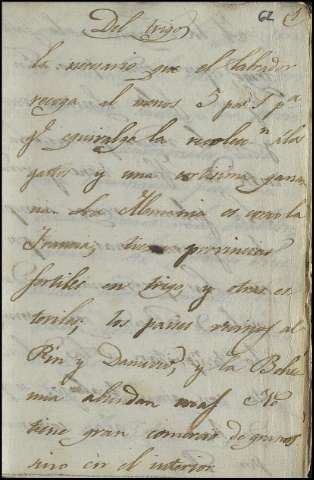 62
Del trigo
Es necesario que el labrador
recoga al menos 5 por 1 pa
qe equivalga la recoleccn á los
gastos y una cortisima ganan
cia. La Alemania es como la
Francia; tiene provincias
fertiles en trigo y otras es
teriles; los paises vecinos al
Rin y Danuvio, y la Bohe
mia abundan mas. No
tiene gran comercio de granos
sino en el interior